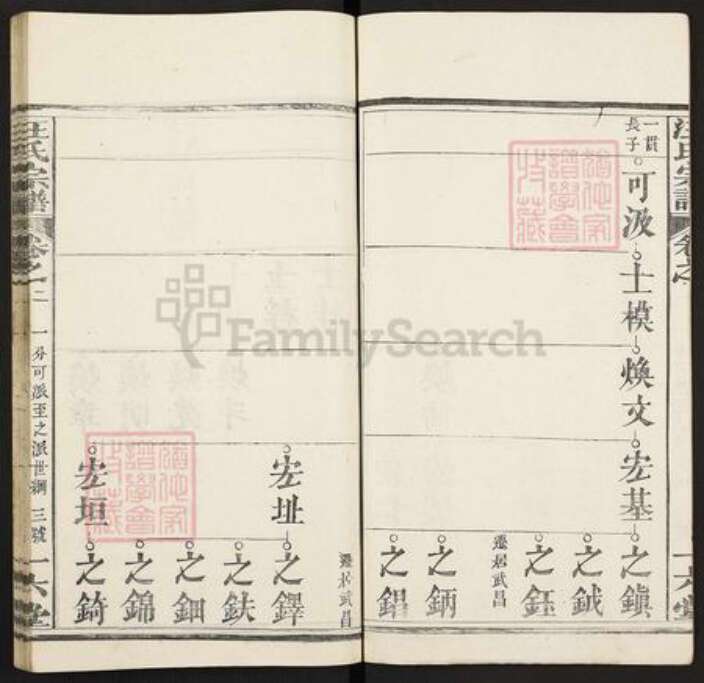 汪氏宗譜
卷之
一貫
長子
可汲
士模
煥文
宏基
之鎭
之鉞
之鈺
遷居武昌
之鈵
之鋇
六堂
遷居武昌
宏址
之鐸
之鈇
之鈿
之錦
宏垣
之錡
汪氏宗譜
卷之一
二
一分可派至之派世綱
三號
六堂
FamilySearch